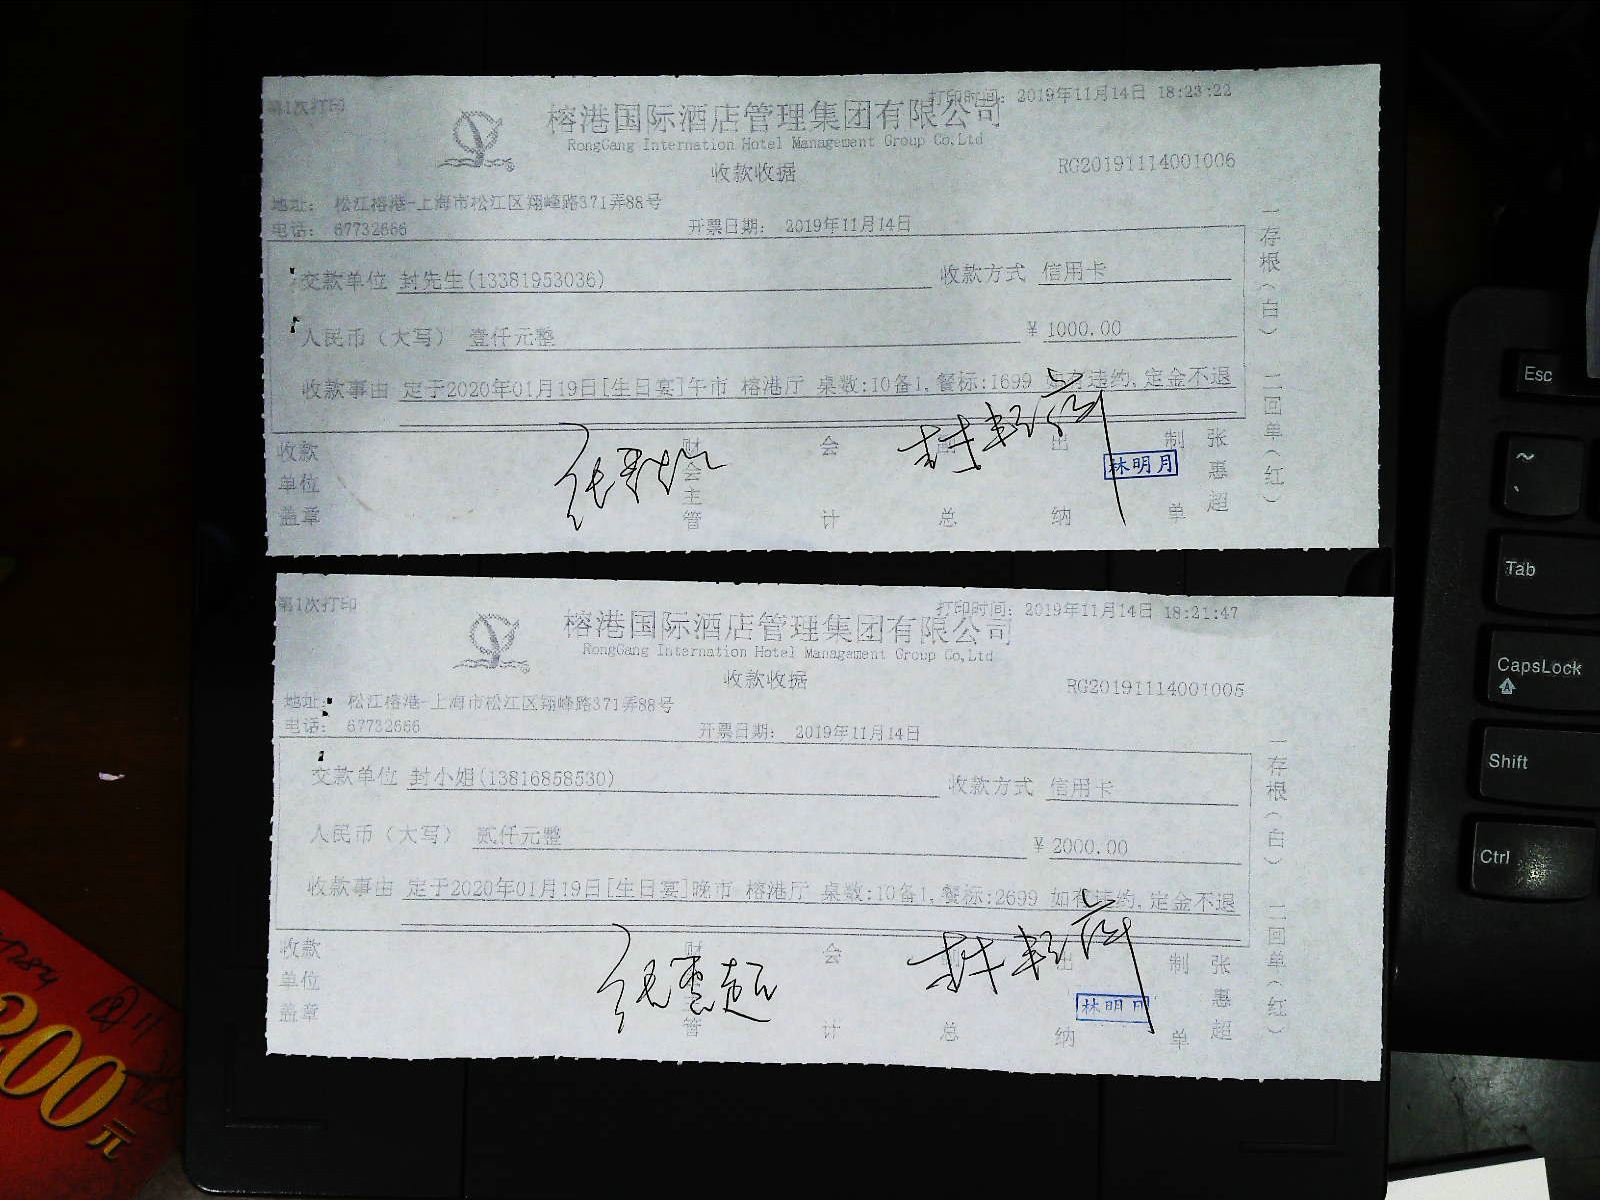 第1次打印
打印时间: 2019年11月14日 18:23:22
榕港国际酒店管理集团有限公司
RongGang Internation Hotel Management Group Co,Ltd
收款收据
RG20191114001006
地址: 松江榕港-上海市松江区翔峰路371弄88号
电话: 67732666 开票日期: 2019年11月14日
交款单位 封先生(13381953036) 收款方式 信用卡
人民币(大写) 壹仟元整 ¥ 1000.00
收款事由 定于2020年01月19日[生日宴]午市 榕港厅 桌数:10备1,餐标:1699 如有违约,定金不退
收款单位盖章 财会主管 会计 总 出纳 制单 张惠超
林明月
一存根(白) 二回单(红)
第1次打印
打印时间: 2019年11月14日 18:21:47
榕港国际酒店管理集团有限公司
RongGang Internation Hotel Management Group Co,Ltd
收款收据
RG20191114001005
地址: 松江榕港-上海市松江区翔峰路371弄88号
电话: 67732666 开票日期: 2019年11月14日
交款单位 封小姐(13816858530) 收款方式 信用卡
人民币(大写) 贰仟元整 ¥ 2000.00
收款事由 定于2020年01月19日[生日宴]晚市 榕港厅 桌数:10备1,餐标:2699 如有违约,定金不退
收款单位盖章 财会主管 会计 总 出纳 制单 张惠超
张惠超
林明月
一存根(白) 二回单(红)
Esc
~
Tab
CapsLock
Shift
Ctrl
200元